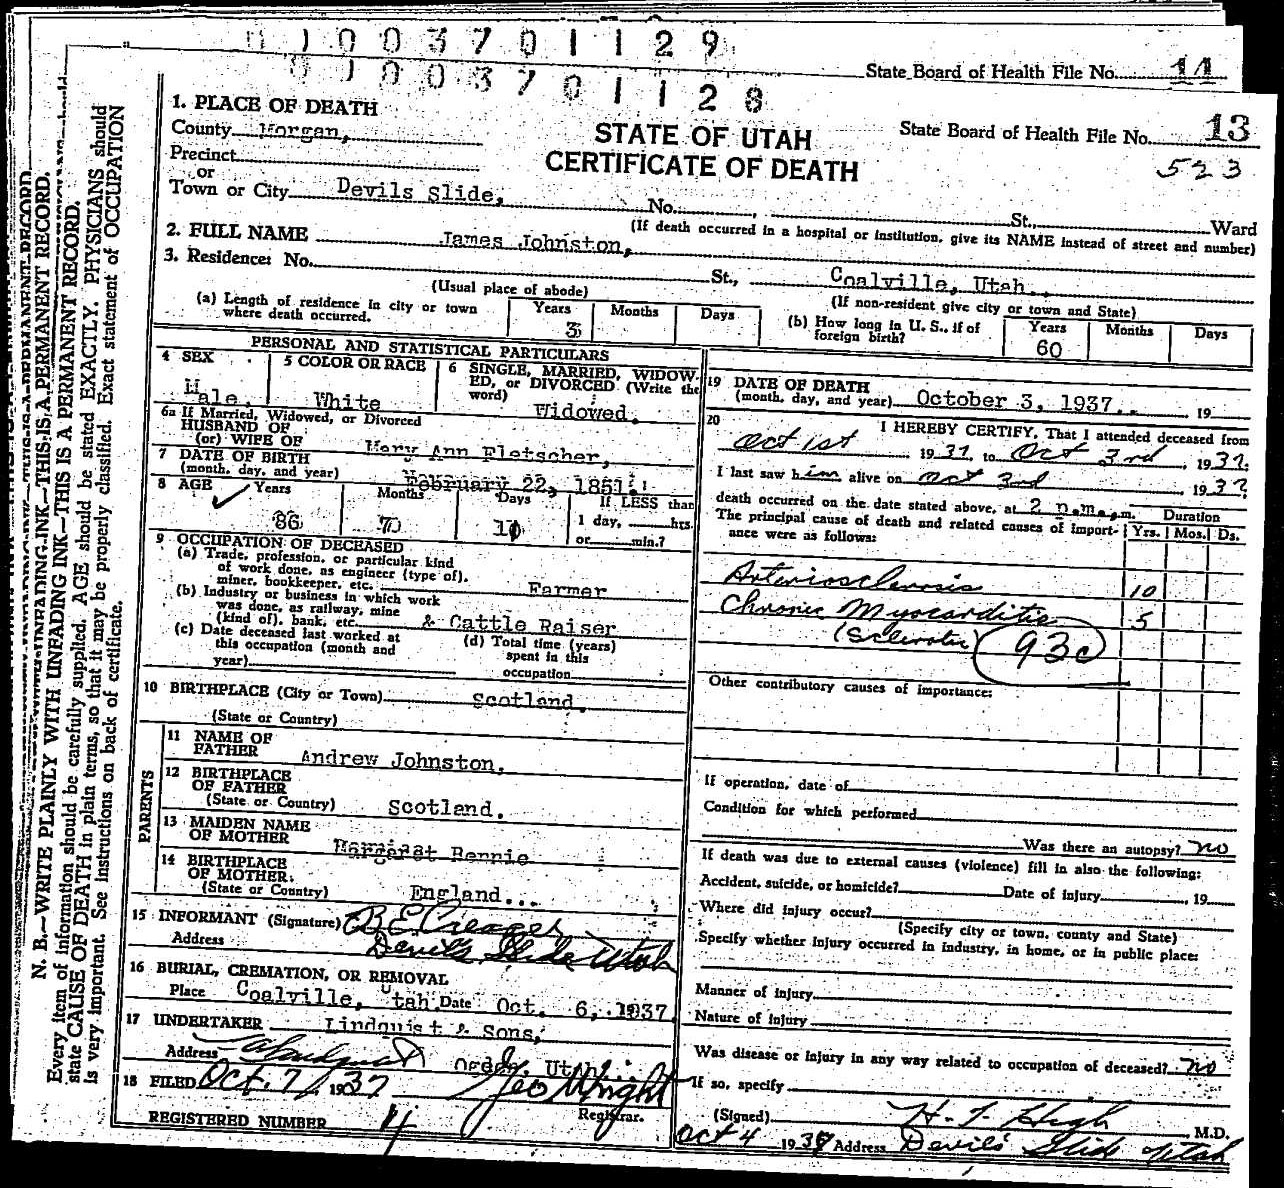 01003701129
State Board of Health File No. 14
0100370128
State Board of Health File No. 13
523
STATE OF UTAH
CERTIFICATE OF DEATH
1. PLACE OF DEATH
County Morgan,
Precinct
or
Town or City Devils Slide, No. , St., Ward
(If death occurred in a hospital or institution, give its NAME instead of street and number)
2. FULL NAME James Johnston,
3. Residence: No. St., Coalville, Utah.,
(Usual place of abode)
(If non-resident give city or town and State)
(a) Length of residence in city or town where death occurred. Years 3 Months Days
(b) How long in U. S., if of foreign birth? Years 60 Months Days
PERSONAL AND STATISTICAL PARTICULARS
4 SEX Male.
5 COLOR OR RACE White
6 SINGLE, MARRIED, WIDOWED, or DIVORCED (Write the word) Widowed.
6a If Married, Widowed, or Divorced
HUSBAND OF
(or) WIFE OF Mary Ann Fletscher,
7 DATE OF BIRTH
(month, day, and year) February 22, 1851.
8 AGE Years 86 Months 7 Days 11 If LESS than 1 day, hrs. or min.?
9 OCCUPATION OF DECEASED
(a) Trade, profession, or particular kind
of work done, as engineer (type of),
miner, bookkeeper, etc. Farmer
(b) Industry or business in which work
was done, as railway, mine
(kind of), bank, etc. & Cattle Raiser
(c) Date deceased last worked at
this occupation (month and
year)
(d) Total time (years)
spent in this
occupation
10 BIRTHPLACE (City or Town) Scotland.
(State or Country)
PARENTS
11 NAME OF
FATHER Andrew Johnston,
12 BIRTHPLACE
OF FATHER
(State or Country) Scotland.
13 MAIDEN NAME
OF MOTHER Margaret Rennie
14 BIRTHPLACE
OF MOTHER.
(State or Country) England...
15 INFORMANT (Signature) B E Creager
Address Devil's Slide Utah
16 BURIAL, CREMATION, OR REMOVAL
Place Coalville, Utah. Date Oct. 6, 1937.
17 UNDERTAKER Lindquist & Sons,
Address Ogden, Utah
18 FILED Oct. 7, 1937 Geo Wright
Registrar.
REGISTERED NUMBER 4
19 DATE OF DEATH
(month, day, and year) October 3, 1937. , 19
20 I HEREBY CERTIFY, That I attended deceased from
Oct 1st 1937, to Oct 3rd, 1937.
I last saw him alive on Oct 3rd, 1937,
death occurred on the date stated above, at 2 p.m. m. Duration
The principal cause of death and related causes of importance were as follows: Yrs. Mos. Ds.
Arteriosclerosis 10
Chronic Myocarditis 5
(Sclerotic) 93c
Other contributory causes of importance:
If operation, date of
Condition for which performed
Was there an autopsy? no
If death was due to external causes (violence) fill in also the following:
Accident, suicide, or homicide? Date of injury , 19
Where did injury occur?
(Specify city or town, county and State)
Specify whether injury occurred in industry, in home, or in public place:
Manner of injury
Nature of injury
Was disease or injury in any way related to occupation of deceased? no
If so, specify
(Signed) H. F. High, M.D.
Oct 4 1937 Address Devil's Slide Utah
N. B.—WRITE PLAINLY WITH UNFADING INK—THIS IS A PERMANENT RECORD.
Every item of information should be carefully supplied. AGE should be stated EXACTLY. PHYSICIANS should
state CAUSE OF DEATH in plain terms, so that it may be properly classified. Exact statement of OCCUPATION
is very important. See instructions on back of certificate.